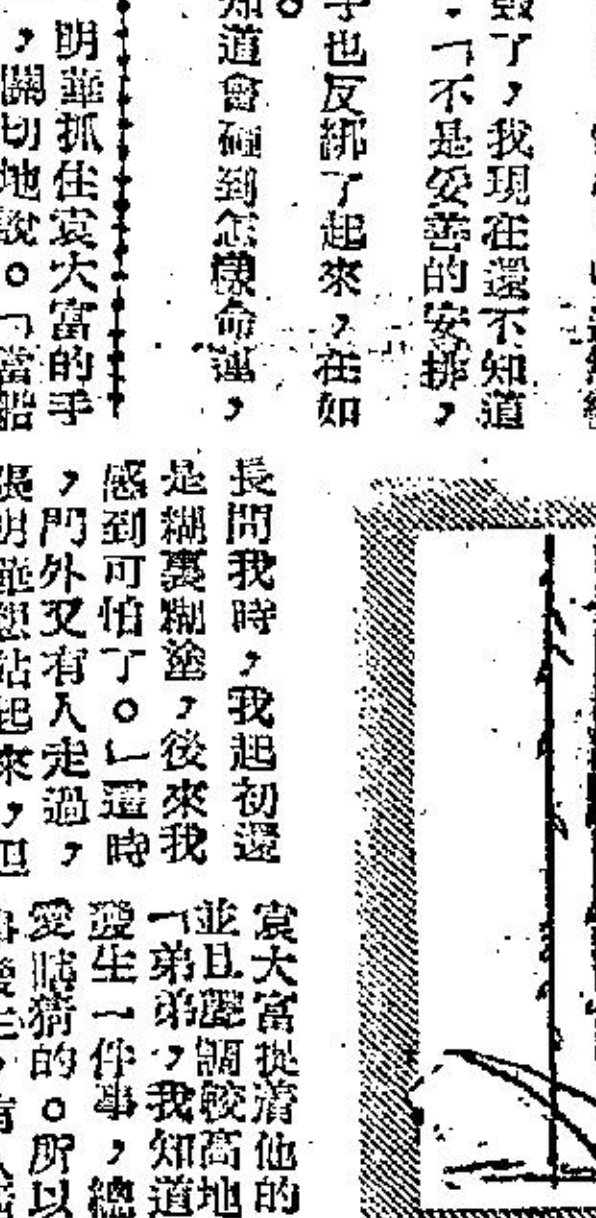 了，我現在還不知道
，「不是妥善的安排，
子也反綁了起來，在如
。
知道會碰到怎樣命運，
明華抓住袁大富的手
，關切地說。「當船
長問我時，我起初還
是糊裏糊塗，後來我
感到可怕了。」這時
，門外又有人走過，
張明華想站起來，但
袁大富提著他的
並且聲調較高地
「弟弟，我知道
發生一件事，總
愛瞎猜的。所以